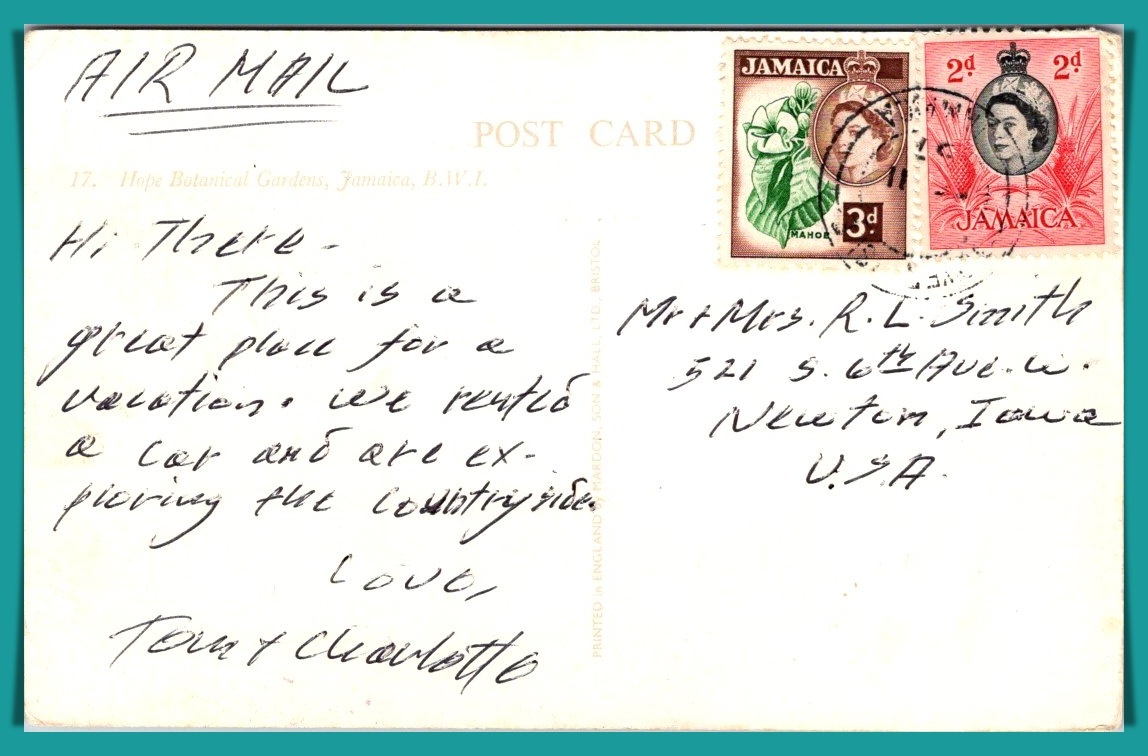 AIR MAIL
POST CARD
17. Hope Botanical Gardens, Jamaica, B.W.I.
Hi There -
This is a
great place for a
vacation. We rented
a car and are ex-
ploring the countryside.
Love,
Tom + Charlotte
PRINTED in ENGLAND by MARDON, SON & HALL, LTD., BRISTOL
JAMAICA
MAHOE
3d.
2d 2d
JAMAICA
Mr + Mrs. R. L. Smith
521 S. 6th Ave. W.
Newton, Iowa
U.S.A.